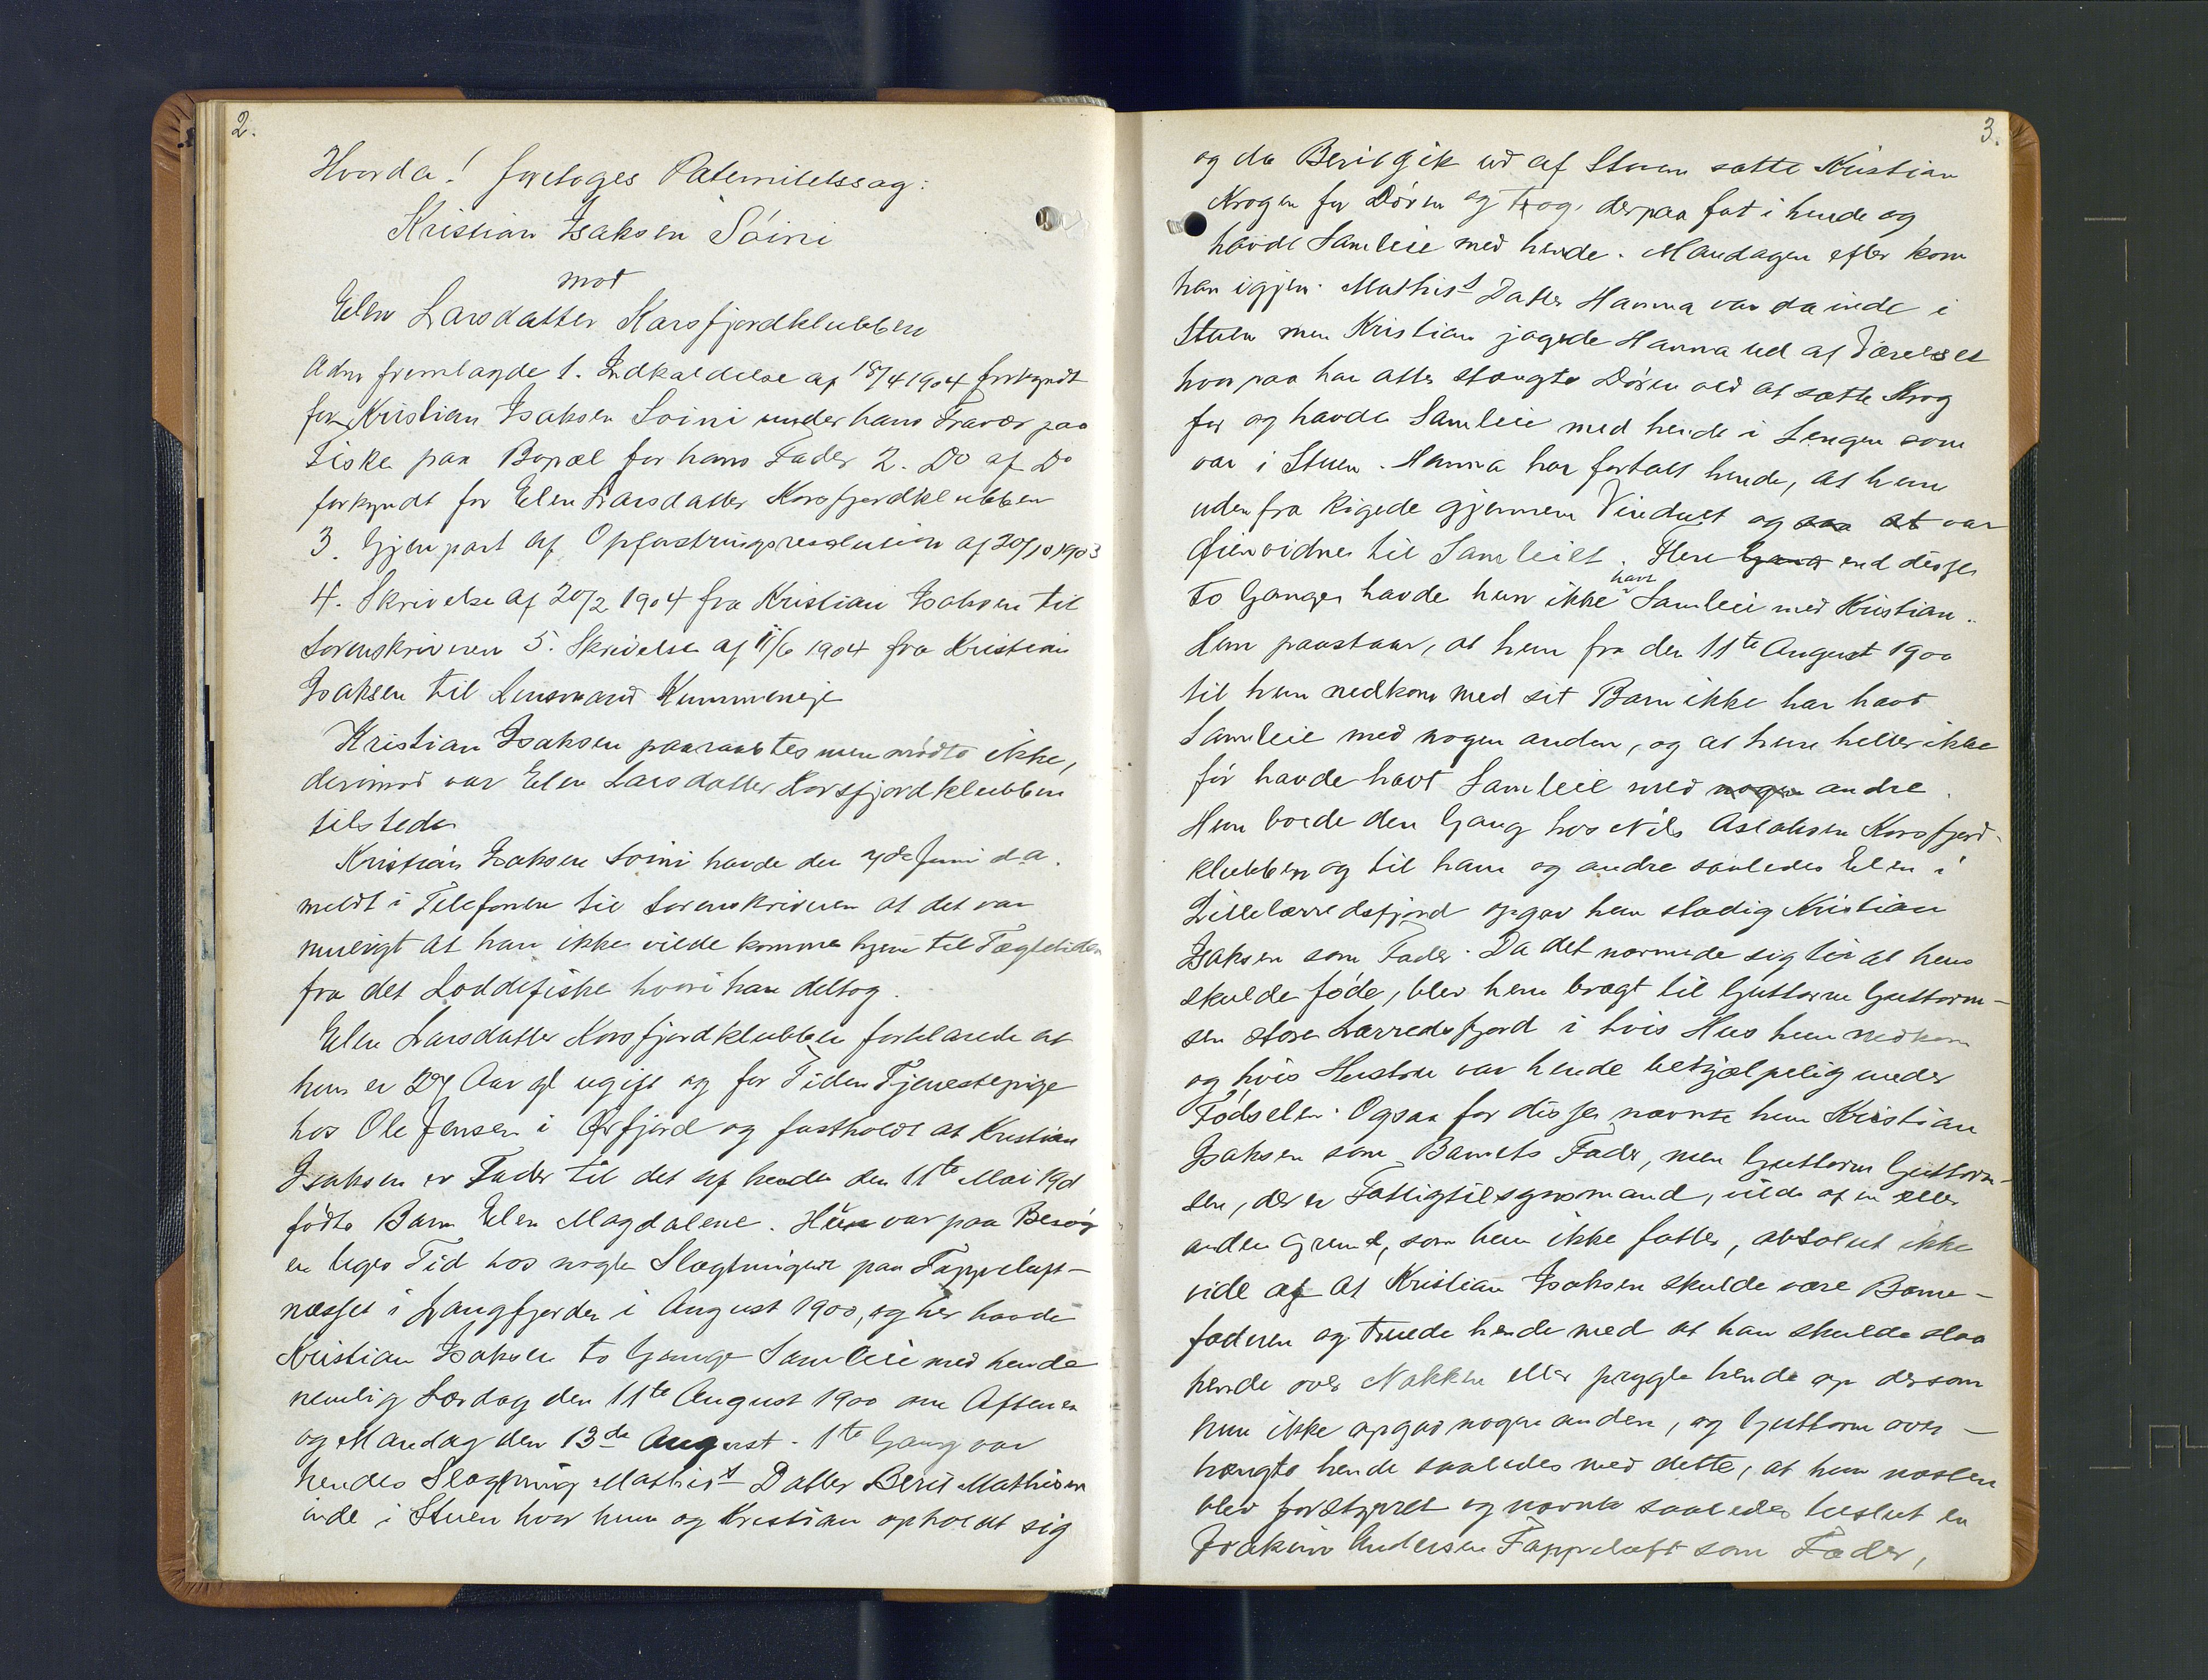 2.
Hvorda! foretoges Paternitetssag:
Kristian Isaksen Soini
mod
Elen Larsdatter Korsfjordklubben
Adm fremlagde 1. Indkaldelse af 18/4 1904 forkyndt
for Kristian Isaksen Soini under hans Fravær paa
Fiske paa Bopæl for hans Fader 2. Do af Do
forkyndt for Elen Larsdatter Korsfjordklubben
3. Gjenpart af Opfostringsresolution af 20/10 1903
4. Skrivelse af 20/2 1904 fra Kristian Isaksen til
Sorenskriveren 5. Skrivelse af 1/6 1904 fra Kristian
Isaksen til Lensmand Kummeneje
Kristian Isaksen paaraabtes men mødte ikke,
derimod var Elen Larsdatter Korsfjordklubben
tilstede
Kristian Isaksen Soini havde den 7de Juni d.a.
meldt i Telefonen til Sorenskriveren at det var
muligt at han ikke vilde komme hjem til Tægtetiden
fra det Loddefiske hvori han deltog.
Elen Larsdatter Korsfjordklubben forklarede at
hun er 27 Aar gl ugift og for Tiden Tjenestepige
hos Ole Jensen i Ørfjord og fastholdt at Kristian
Isaksen er Fader til det af hende den 11te Mai 1901
fødte Barn Elen Magdalene. Hun var paa Besøg
en Uges Tid hos nogle Slægtninger paa Tappeluft-
næsset i Langfjorden i August 1900, og her havde
Kristian Isaksen to Gange Samleie med hende
nemlig Lørdag den 11te August 1900 om Aftenen
og Mandag den 13de August. 1te Gang var
hendes Slægtning Mathis's Datter Berit Mathisen
inde i Stuen hvor hun og Kristian opholdt sig
3.
og da Berit gik ud af Stuen satte Kristian
Krogen for Døren og tog derpaa fat i hende og
havde Samleie med hende. Mandagen efter kom
han igjen. Mathis's Datter Hanna var da inde i
Stuen men Kristian jagede Hanna ud af Værelset
hvorpaa han atter stængte Døren ved at sætte Krog
for og havde Samleie med hende i Sengen som
var i Stuen. Hanna har fortalt hende, at hun
udenfra kigede gjennem Vinduet og saa at var
Øienvidne til Samleiet. Flere Gang end disse
to Ganger havde hun ikke havt Samleie med Kristian.
Hun paastaar, at hun fra den 11te August 1900
til hun nedkom med sit Barn ikke har havt
Samleie med nogen anden, og at hun heller ikke
før havde havt Samleie med nogen andre.
Hun boede den Gang hos Nils Aslaksen Korsfjord-
klubben og til ham og andre saaledes Elen i
Lillelærredsfjord opgav hun stadig Kristian
Isaksen som Fader. Da det nærmede sig til at hun
skulde føde, blev hun bragt til Guttorm Guttorm-
sen Store Lærredsfjord i hvis Hus hun nedkom
og hvis Hustru var hende behjælpelig under
Fødselen. Ogsaa for disse nævnte hun Kristian
Isaksen som Barnets Fader, men Guttorm Guttorm-
sen, der er Fattigtilsynsmand, vilde af en eller
anden Grund, som hun ikke fatter, absolut ikke
vide af at Kristian Isaksen skulde være Barne-
faderen og truede hende med at han skulde slaa
hende over Nakken eller prygle hende op dersom
hun ikke opgav nogen anden, og Guttorm over-
hængte hende saaledes med dette, at hun næsten
blev forstyrret og nævnte saaledes tilslut en
Joakim Andersen Tappeluft som Fader,